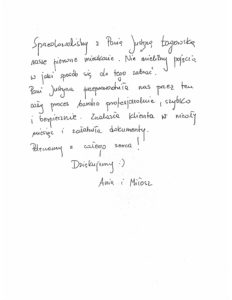 Sprzedawaliśmy z Panią Justyną Łagowską
nasze pierwsze mieszkanie. Nie mieliśmy pojęcia
w jaki sposób się do tego zabrać.
Pani Justyna przeprowadziła nas przez ten
cały proces bardzo profesjonalnie, szybko
i bezpiecznie. Znalazła klienta w niecały
miesiąc i załatwiła dokumenty.
Polecamy z całego serca!
Dziękujemy :)
Ania i Miłosz